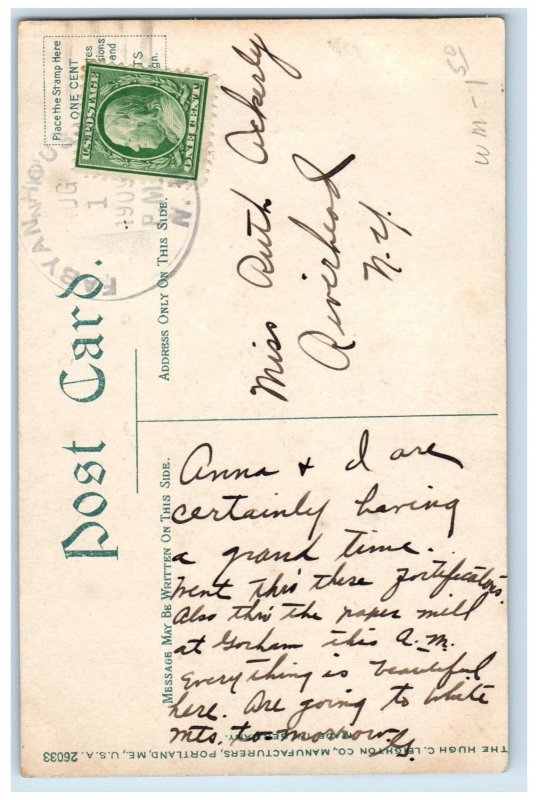 Place the Stamp Here
ONE CENT
U.S. POSTAGE
ONE CENT
FABYAN HOU
1
1909
P.M.
N.
Post Card.
ADDRESS ONLY ON THIS SIDE.
Miss Ruth Ackerly
Riverhead
N.Y.
WM-1
MESSAGE MAY BE WRITTEN ON THIS SIDE.
Anna & I are
certainly having
a grand time.
Went thro these fortifications.
Also thro the paper mill
at Gorham this A.M.
Everything is beautiful
here. Are going to White
Mts. to-morrow.
THE HUGH C. LEIGHTON CO., MANUFACTURERS, PORTLAND, ME., U.S.A. 26033